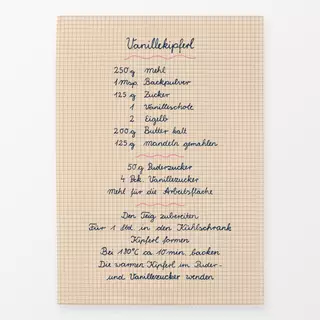 Vanillekipferl
250g Mehl
1 Msp. Backpulver
125g Zucker
1 Vanilleschote
2 Eigelb
200g Butter kalt
125g Mandeln gemahlen
50g Puderzucker
4 Pck. Vanillezucker
Mehl für die Arbeitsfläche
Den Teig zubereiten
Für 1 Std in den Kühlschrank
Kipferl formen
Bei 180°C ca 10 min. backen
Die warmen Kipferl im Puder-
und Vanillezucker wenden